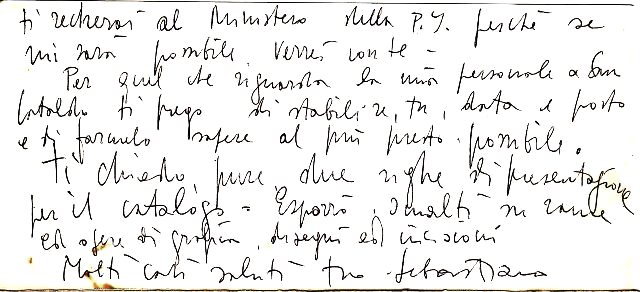 ti recherai al Ministero della P.I. perché se
mi sarà possibile verrei con te -
Per quel che riguarda la mia personale a San
Cataldo ti prego di stabilire, tu, data e posto
e di farmelo sapere al più presto possibile.
Ti chiedo, pure, due righe di presentazione
per il catalogo - Esporrò, smalti su rame
ed opere di grafica, disegni ed incisioni
Molti cari saluti tuo Sebastiano